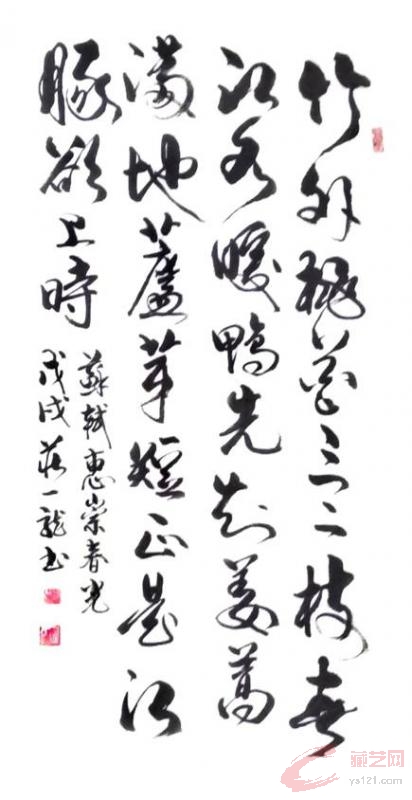 竹外桃花三二枝春
江水暖鴨先知蔞蒿
滿地蘆芽短正是河
豚欲上時
蘇軾惠崇春光
戊戌蔣一龍書
藏艺网
ys121.com